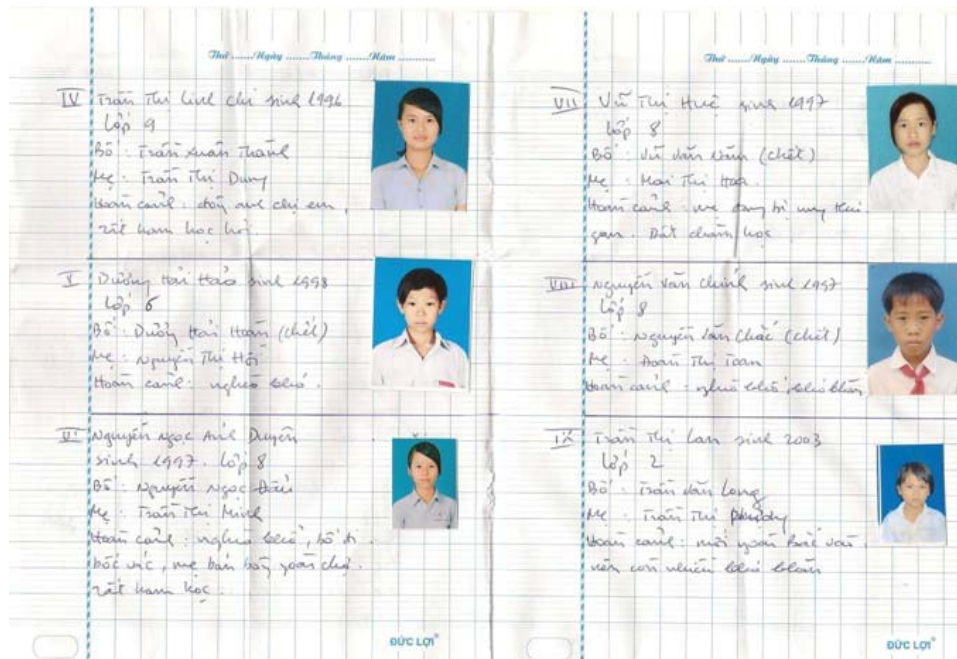 Thứ ......Ngày ......Tháng ......Năm ..........
IV Trần Thị Linh Chi sinh 1996
Lớp 9
Bố : Trần Xuân Thành
Mẹ : Trần Thị Dung
Hoàn cảnh : đông anh chị em,
rất ham học hỏi.
V Dương Hải Hảo sinh 1998
Lớp 6
Bố : Dương Hải Hoàn (chết)
Mẹ : Nguyễn Thị Hội
Hoàn cảnh : nghèo khó.
VI Nguyễn Ngọc Anh Duyên
sinh 1997. Lớp 8
Bố : Nguyễn Ngọc
Mẹ : Trần Thị Minh
Hoàn cảnh : nghèo khó, bố đi
bốc vác, mẹ bán hàng ngoài chợ.
rất ham học.
ĐỨC LỢI
Thứ ......Ngày ......Tháng ......Năm ..........
VII Vũ Thị Huệ sinh 1997
Lớp 8
Bố : Vũ Văn Năm (chết)
Mẹ : Mai Thị Hoa.
Hoàn cảnh : mẹ đang bị ung thư
gan. Rất chăm học
VIII Nguyễn Văn Chính sinh 1997
Lớp 8
Bố : Nguyễn Văn Chắc (chết)
Mẹ : Đoàn Thị Toan
Hoàn cảnh : nghèo khó, khó khăn
IX Trần Thị Lan sinh 2003
Lớp 2
Bố : Trần Văn Long
Mẹ : Trần Thị Phương
Hoàn cảnh : mới ngoài Bắc vào
nên còn nhiều khó khăn
ĐỨC LỢI